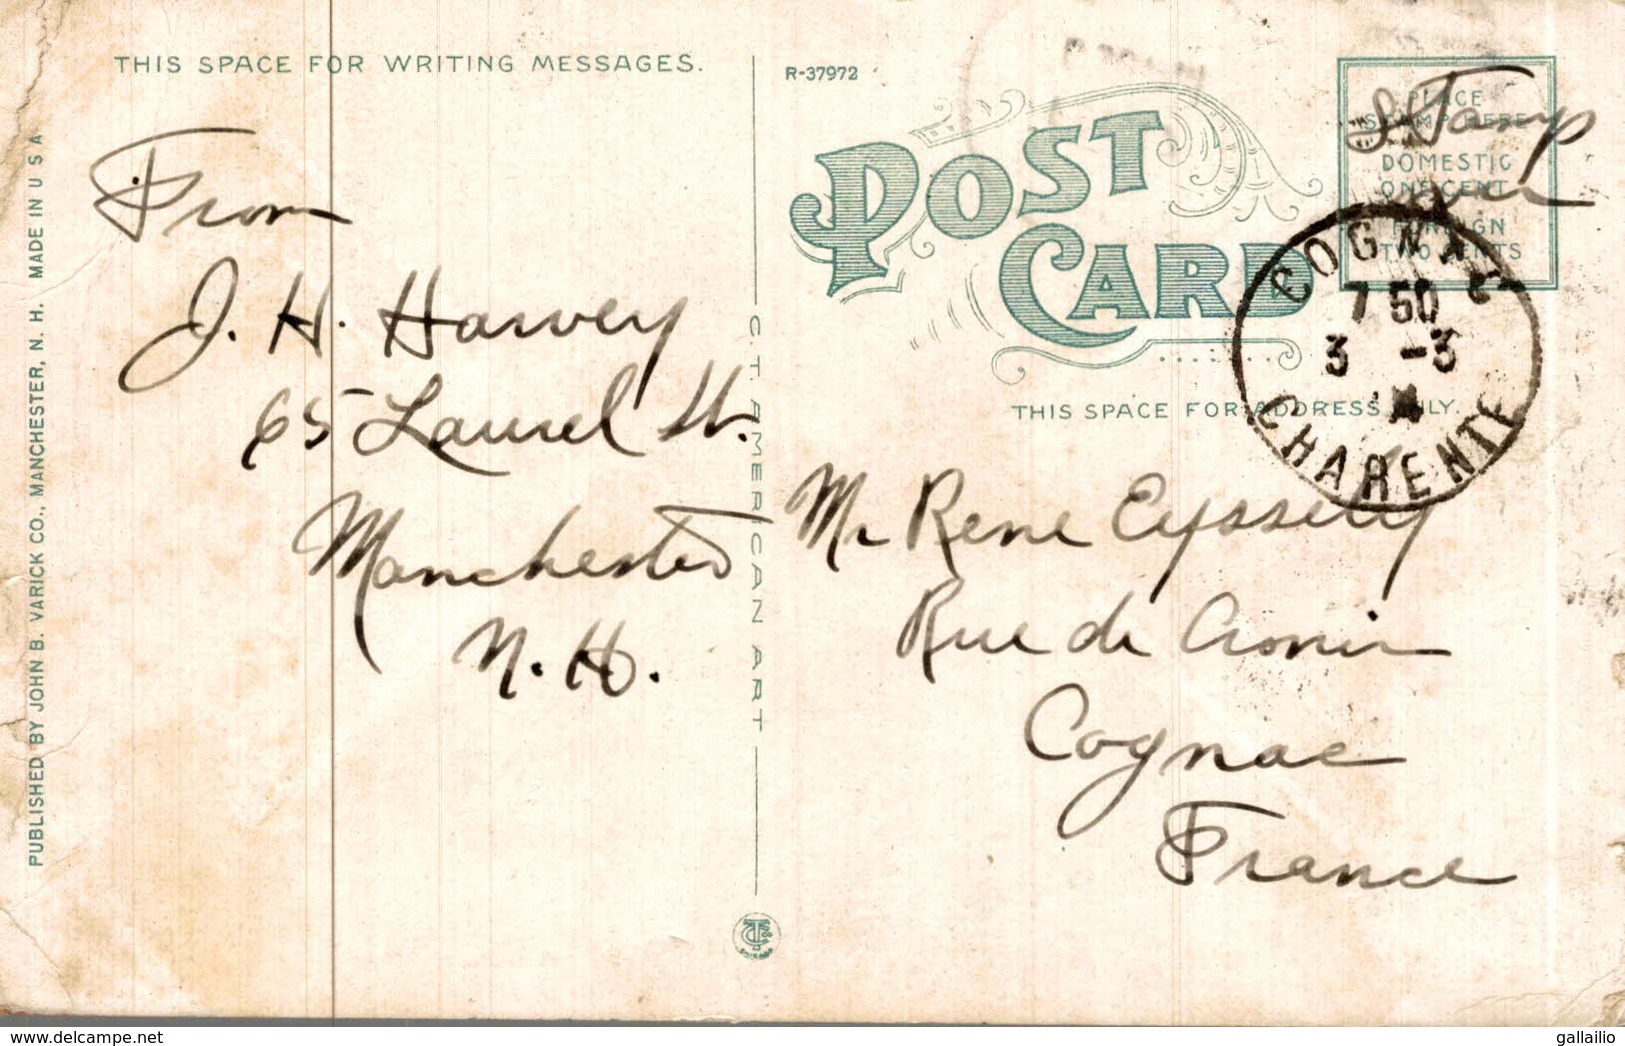 THIS SPACE FOR WRITING MESSAGES.
From
J. H. Harvey
65 Laurel St.
Manchester
N. H.
PUBLISHED BY JOHN B. VARICK CO., MANCHESTER, N. H. MADE IN U S A
C. T. AMERICAN ART
R-37972
POST CARD
PLACE
STAMP HERE
DOMESTIC
ONE CENT
FOREIGN
TWO CENTS
Stamp
over
COGNAC
7 50
3 -3
CHARENTE
THIS SPACE FOR ADDRESS ONLY.
Mr Rene Eyssely
Rue de Cronin
Cognac
France
www.delcampe.net
gallailio